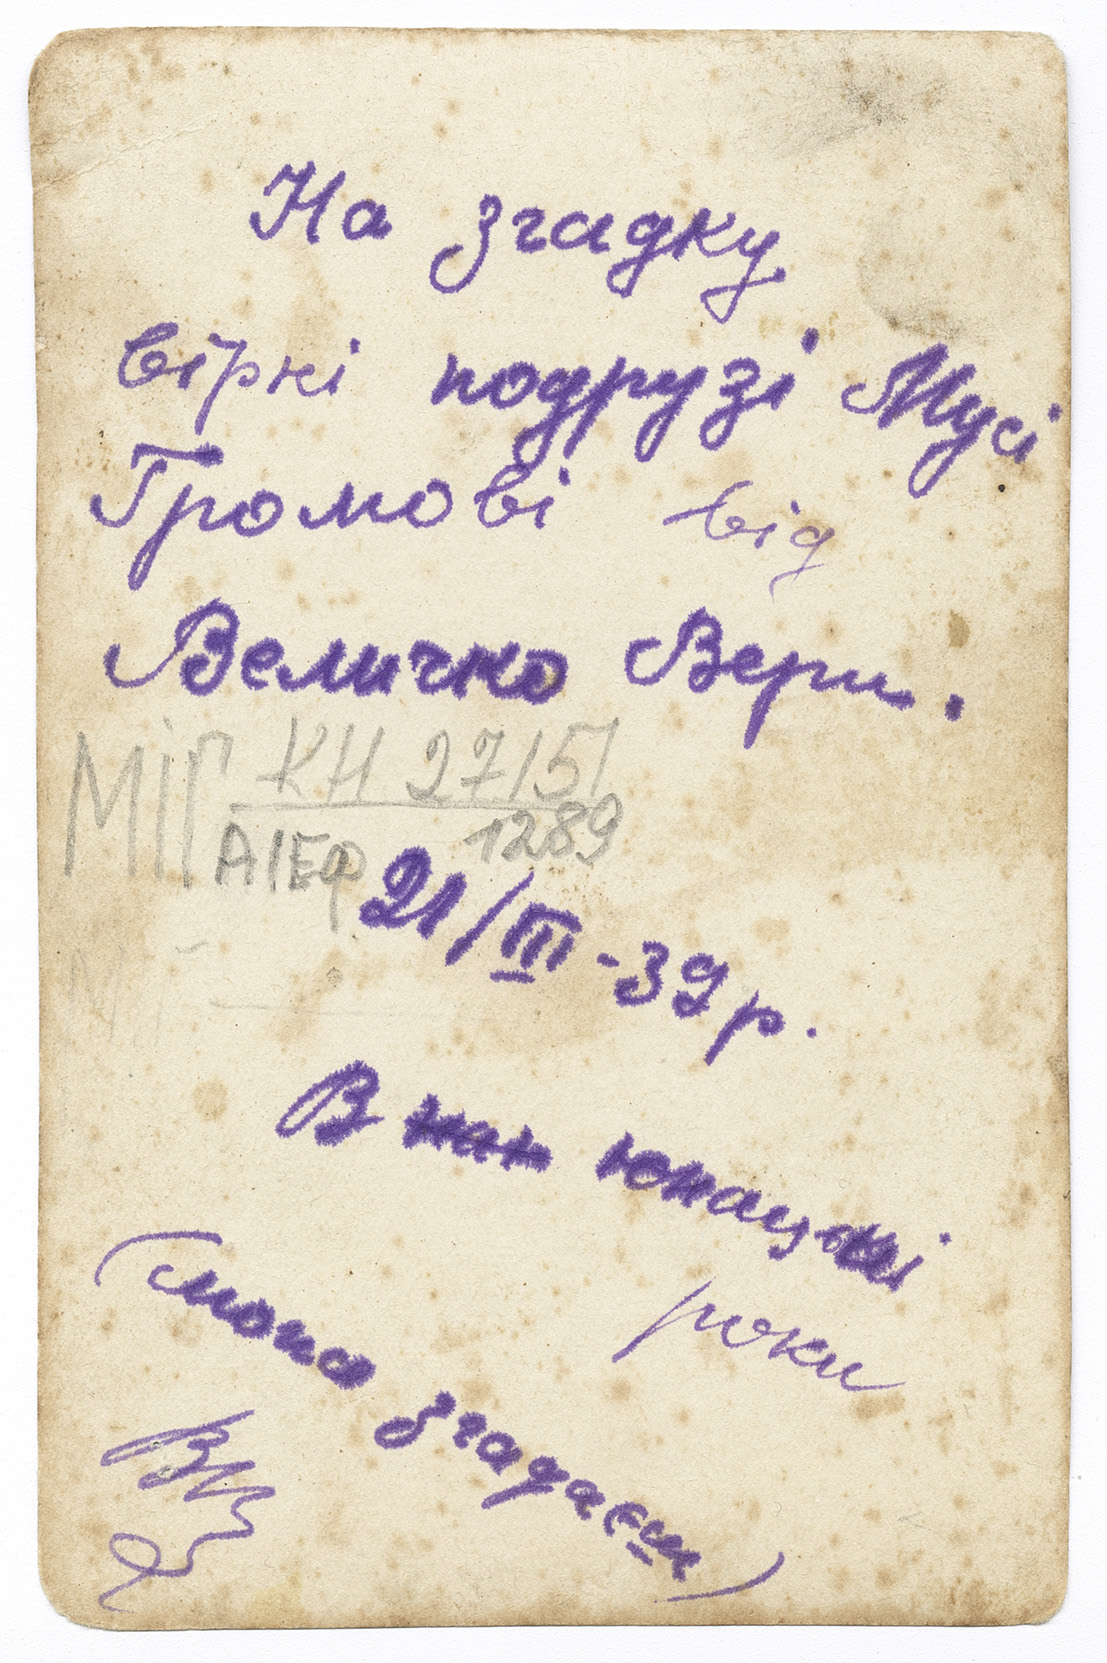 На згадку
вірні подрузі Мусі
Громові від
Величко Вери.
МІГ КН 27151
АІЕФ 1289
21/ІІІ-39 р.
В юнацькі
роки
(може згадаєш)